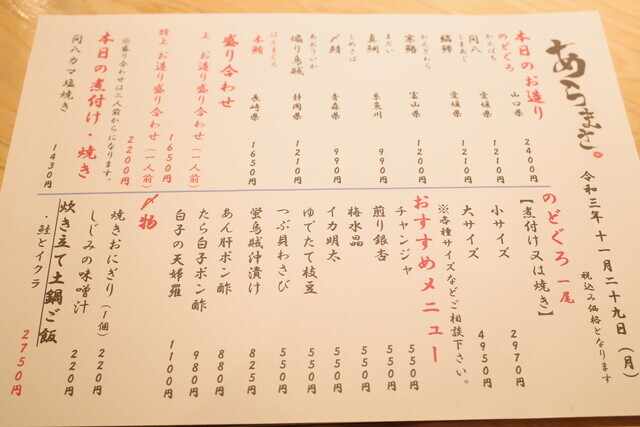 あらまさ
令和三年 十一月二十九日(月)
税込み価格となります
本日のお造り
のどぐろ 山口県 2400円
かんぱち
間八 愛媛県 1210円
しまあじ
縞鯵 愛媛県 1210円
かんざわら
寒鰆 富山県 1200円
まだい
真鯛 糸魚川 990円
しめさば
〆鯖 青森県 990円
あおりいか
煽り烏賊 静岡県 1210円
ほんまぐろ
本鮪 長崎県 1650円
盛り合わせ
上 お造り盛り合わせ(一人前) 1650円
特上 お造り盛り合わせ(一人前) 2200円
※盛り合わせは二人前からになります。
本日の煮付け・焼き
間八カマ塩焼き 1430円
のどぐろ 一尾
【煮付け又は焼き】
小サイズ 2970円
大サイズ 4950円
※各種サイズなどご相談下さい。
おすすめメニュー
チャンジャ 550円
煎り銀杏 550円
梅水晶 550円
イカ明太 550円
ゆでたて枝豆 550円
つぶ貝わさび 550円
蛍烏賊沖漬け 825円
あん肝ポン酢 880円
たら白子ポン酢 980円
白子の天婦羅 1100円
〆物
焼きおにぎり(1個) 220円
しじみの味噌汁 220円
炊き立て土鍋ご飯
・鮭とイクラ 2750円